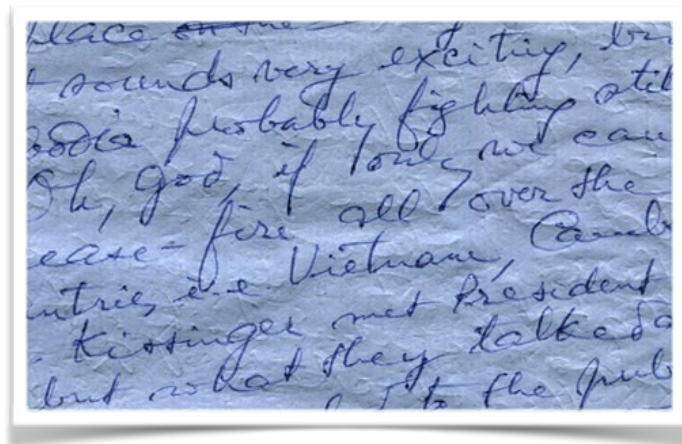 place on the
sounds very exciting, bu
bodia probably fighting stil
Oh, God, if only we can
ease-fire all over the
untries i-e Vietnam, Camb
Kissinger met President
but what they talked a
to the pub